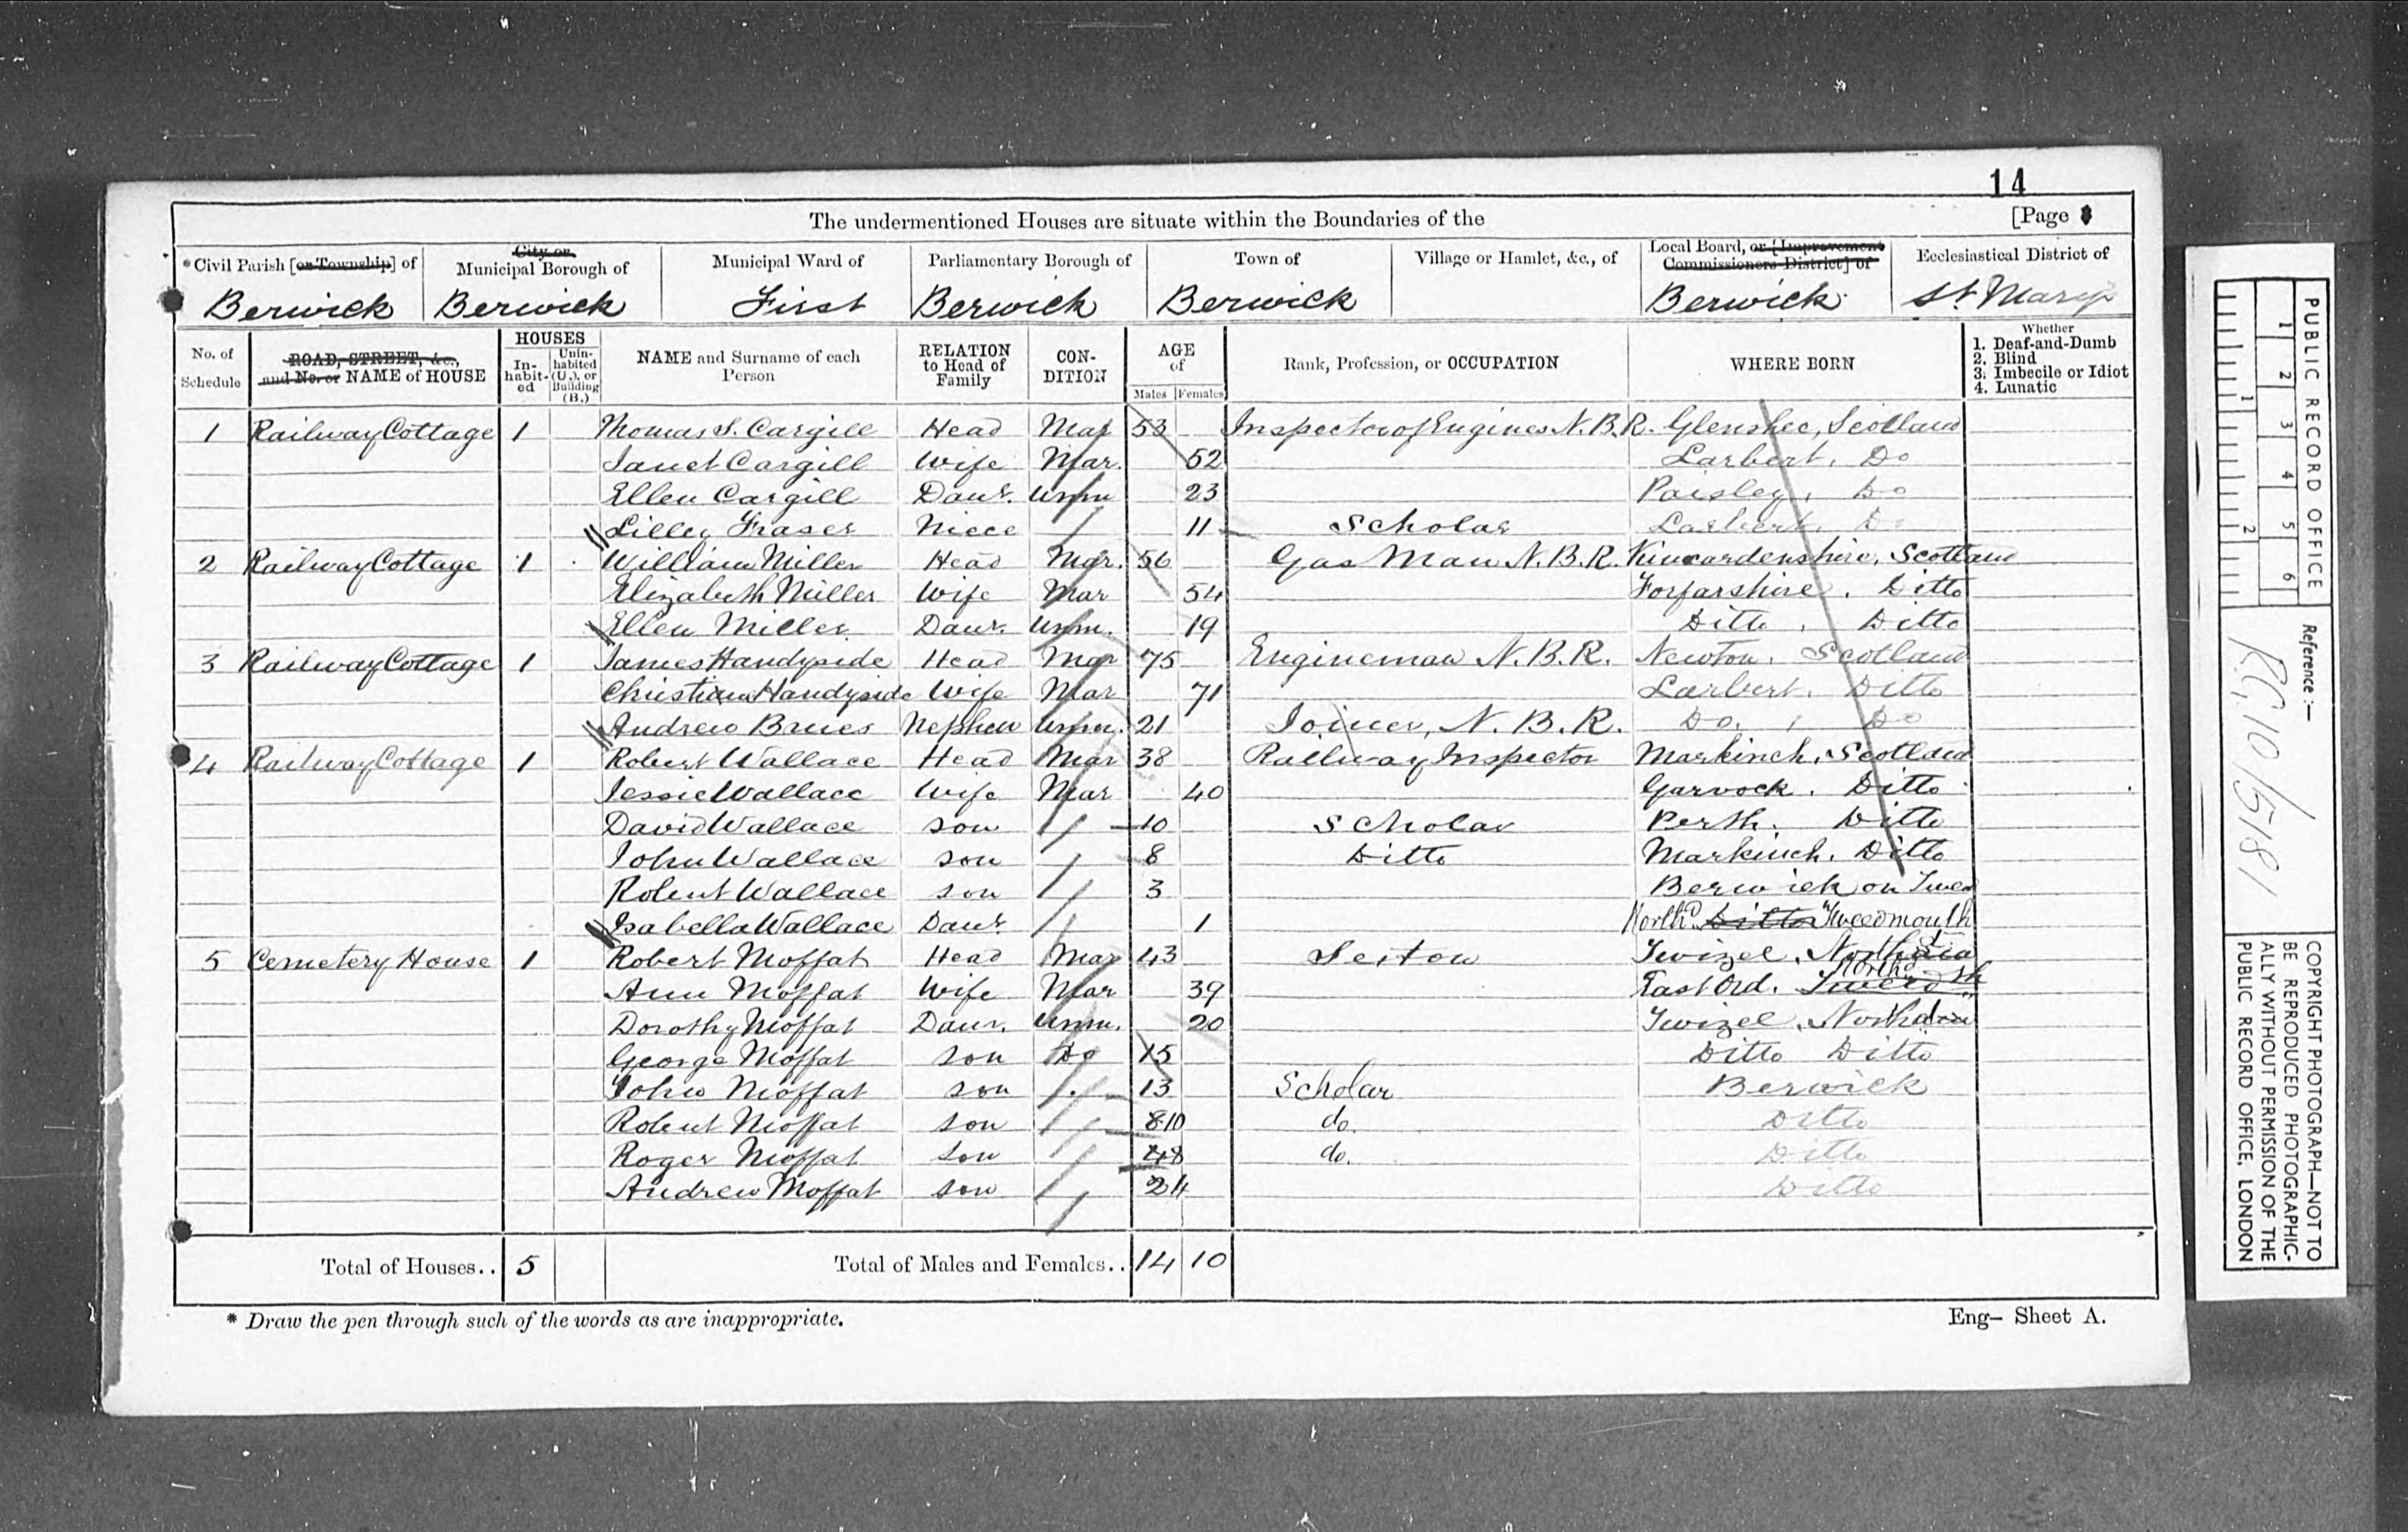 14
The undermentioned Houses are situate within the Boundaries of the
[Page
* Civil Parish [or Township] of
City or Municipal Borough of
Municipal Ward of
Parliamentary Borough of
Town of
Village or Hamlet, &c., of
Local Board, or [Improvement Commissioners District] of
Ecclesiastical District of
Berwick Berwick First Berwick Berwick Berwick St. Mary's
No. of Schedule
ROAD, STREET, &c., and No. or NAME of HOUSE
HOUSES
In-habit-ed
Unin-habited (U.), or Building (B.)
NAME and Surname of each Person
RELATION to Head of Family
CON-DITION
AGE of
Males Females
Rank, Profession, or OCCUPATION
WHERE BORN
Whether
1. Deaf-and-Dumb
2. Blind
3. Imbecile or Idiot
4. Lunatic
1 Railway Cottage 1 Thomas S. Cargill Head Mar 53 Inspector of Engines N.B.R. Glenshee, Scotland
Janet Cargill Wife Mar. 52 Larbert, Do
Ellen Cargill Daur. Unm 23 Paisley, Do
Lilley Fraser Niece 11 Scholar Larbert, Do
2 Railway Cottage 1 William Miller Head Mar. 56 Gas Man N.B.R. Kincardenshire, Scotland
Elizabeth Miller Wife Mar 54 Forfarshire, Ditto
Ellen Miller Daur. Unm. 19 Ditto, Ditto
3 Railway Cottage 1 James Handyside Head Mar 75 Engineman N.B.R. Newton, Scotland
Handyside Wife Mar 71 Larbert, Ditto
Andrew Bruce Nephew Unm. 21 Joiner, N.B.R. Do, Do
4 Railway Cottage 1 Robert Wallace Head Mar 38 Railway Inspector Markinch, Scotland
Jessie Wallace Wife Mar 40 Garvock, Ditto
David Wallace Son 10 Scholar Perth, Ditto
John Wallace Son 8 Ditto Markinch, Ditto
Robert Wallace Son 3 Berwick on Tweed
Isabella Wallace Daur. 1 Northd Ditto Tweedmouth
5 Cemetery House 1 Robert Moffat Head Mar 43 Sexton Twizel,
Ann Moffat Wife Mar 39 East Ord, Northd
Dorothy Moffat Daur. Unm. 20 Twizel,
George Moffat Son Do 15 Ditto Ditto
John Moffat Son 13 Scholar Berwick
Robert Moffat Son 8 10 do. Ditto
Roger Moffat Son 4 8 do. Ditto
Andrew Moffat Son 2 4 Ditto
Total of Houses.. 5 Total of Males and Females.. 14 10
* Draw the pen through such of the words as are inappropriate.
Eng- Sheet A.
PUBLIC RECORD OFFICE
1 2 3 4 5 6
1 2
Reference :-
R.G. 10/5181
COPYRIGHT PHOTOGRAPH—NOT TO
BE REPRODUCED PHOTOGRAPHIC-
ALLY WITHOUT PERMISSION OF THE
PUBLIC RECORD OFFICE, LONDON